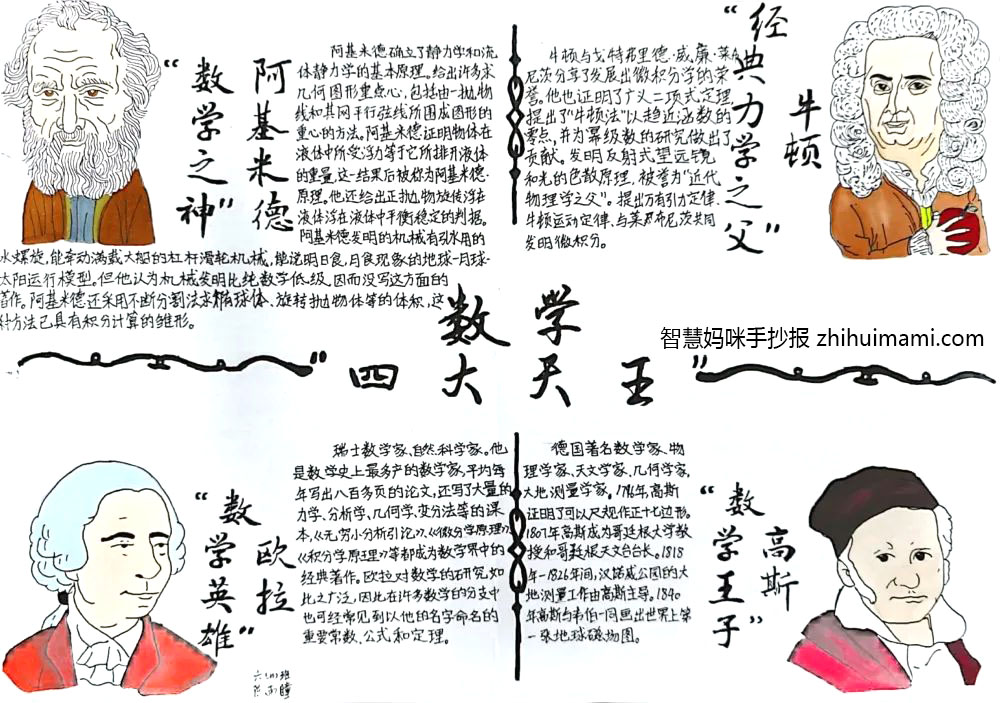 “数学之神”
阿基米德
阿基米德确立了静力学和流
体静力学的基本原理。给出许多求
几何图形重点心,包括由一抛物
线和其网平行弦线所围成图形的
重心的方法。阿基米德证明物体在
液体中所受浮力等于它所排开液体
的重量,这一结果后被称为阿基米德
原理。他还给出正抛物旋转浮在
液体浮在液体中平衡稳定的判据。
阿基米德发明的机械有引水用的
水螺旋,能牵动满载大船的杠杆滑轮机械,能说明日食,月食现象的地球-月球-
太阳运行模型。但他认为机械发明比纯数学低级,因而没写这方面的
著作。阿基米德还采用不断分割法求椭球体、旋转抛物体等的体积,这
种方法已具有积分计算的雏形。
“经典力学之父”
牛顿
牛顿与戈特弗里德·威廉·莱布
尼茨分享了发展出微积分学的荣
誉。他也证明了广义二项式定理,
提出了“牛顿法”以趋近函数的
零点,并为幂级数的研究做出了
贡献。发明反射式望远镜
和光的色散原理,被誉为“近代
物理学之父”。提出万有引力定律、
牛顿运动定律、与莱布尼茨共同
发明微积分。
“数学
四大天王”
智慧妈咪手抄报 zhihuimami.com
“数学英雄”
欧拉
瑞士数学家、自然科学家。他
是数学史上最多产的数学家,平均每
年写出八百多页的论文,还写了大量的
力学、分析学、几何学、变分法等的课
本,《无穷小分析引论》,《微分学原理》,
《积分学原理》等都成为数学界中的
经典著作。欧拉对数学的研究如
此之广泛,因此在许多数学的分支中
也可经常见到以他的名字命名的
重要常数、公式和定理。
德国著名数学家、物
理学家、天文学家、几何学家,
大地测量学家。1796年,高斯
证明了可以尺规作正十七边形。
1807年高斯成为哥廷根大学教
授和哥廷根天文台台长。1818
年-1826年间,汉诺威公国的大
地测量工作由高斯主导。1840
年高斯与韦伯一同画出世界上第
一张地球磁场图。
“数学王子”
高斯